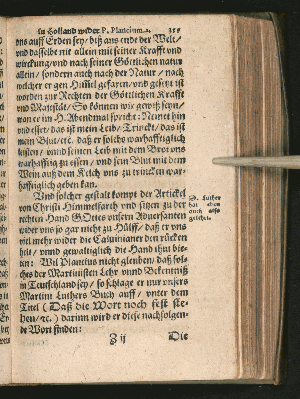 in Holland wider P. Plancium. 2. 355
uns auff Erden sey / biß ans ende der Welt /
und dasselbe nit allein mit seiner Krafft und
wirckung / und nach seiner Göttlichen natur
allein / sondern auch nach der Natur / nach
welcher er gen Himel gefaren / und gesetzt ist
worden zur Rechten der Göttlichen Krafft
und Majestät / So können wir gewiß seyn /
wan er im H. Abendmal spricht: Nemet hin
und esset / das ist mein Leib / Trincket / das ist
mein Blut / etc. daß er solchs warhafftiglich
leisten / und seinen Leib mit dem Brot uns
warhafftig zu essen / und sein Blut mit dem
Wein auß dem Kelch uns zu trincken war-
hafftiglich geben kan.
Und solcher gestalt kompt der Artickel
von Christi Himmelfarth und sitzen zu der
rechten Hand GOttes unsern Adversanten
wider uns so gar nicht zu Hülff / daß er uns
viel mehr wider die Calvinianer den rücken
helt / unnd gewaltiglich die Hand thut bie-
ten: Wil Plancius nicht glauben / daß sol-
ches der Martinisten Lehr unnd Bekentniß
in Teutschland sey / so schlage er nur unsers
Martini Luthers Buch auff / unter dem
Titel (Daß die Wort noch fest ste-
hen / etc.) darinn wird er diese nachfolgen-
de Wort finden:
D. Luther
hat eben
auch also
gelehrt.
Z ij Die